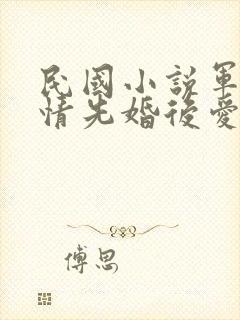 民國小說軍
情先婚後愛
傅思